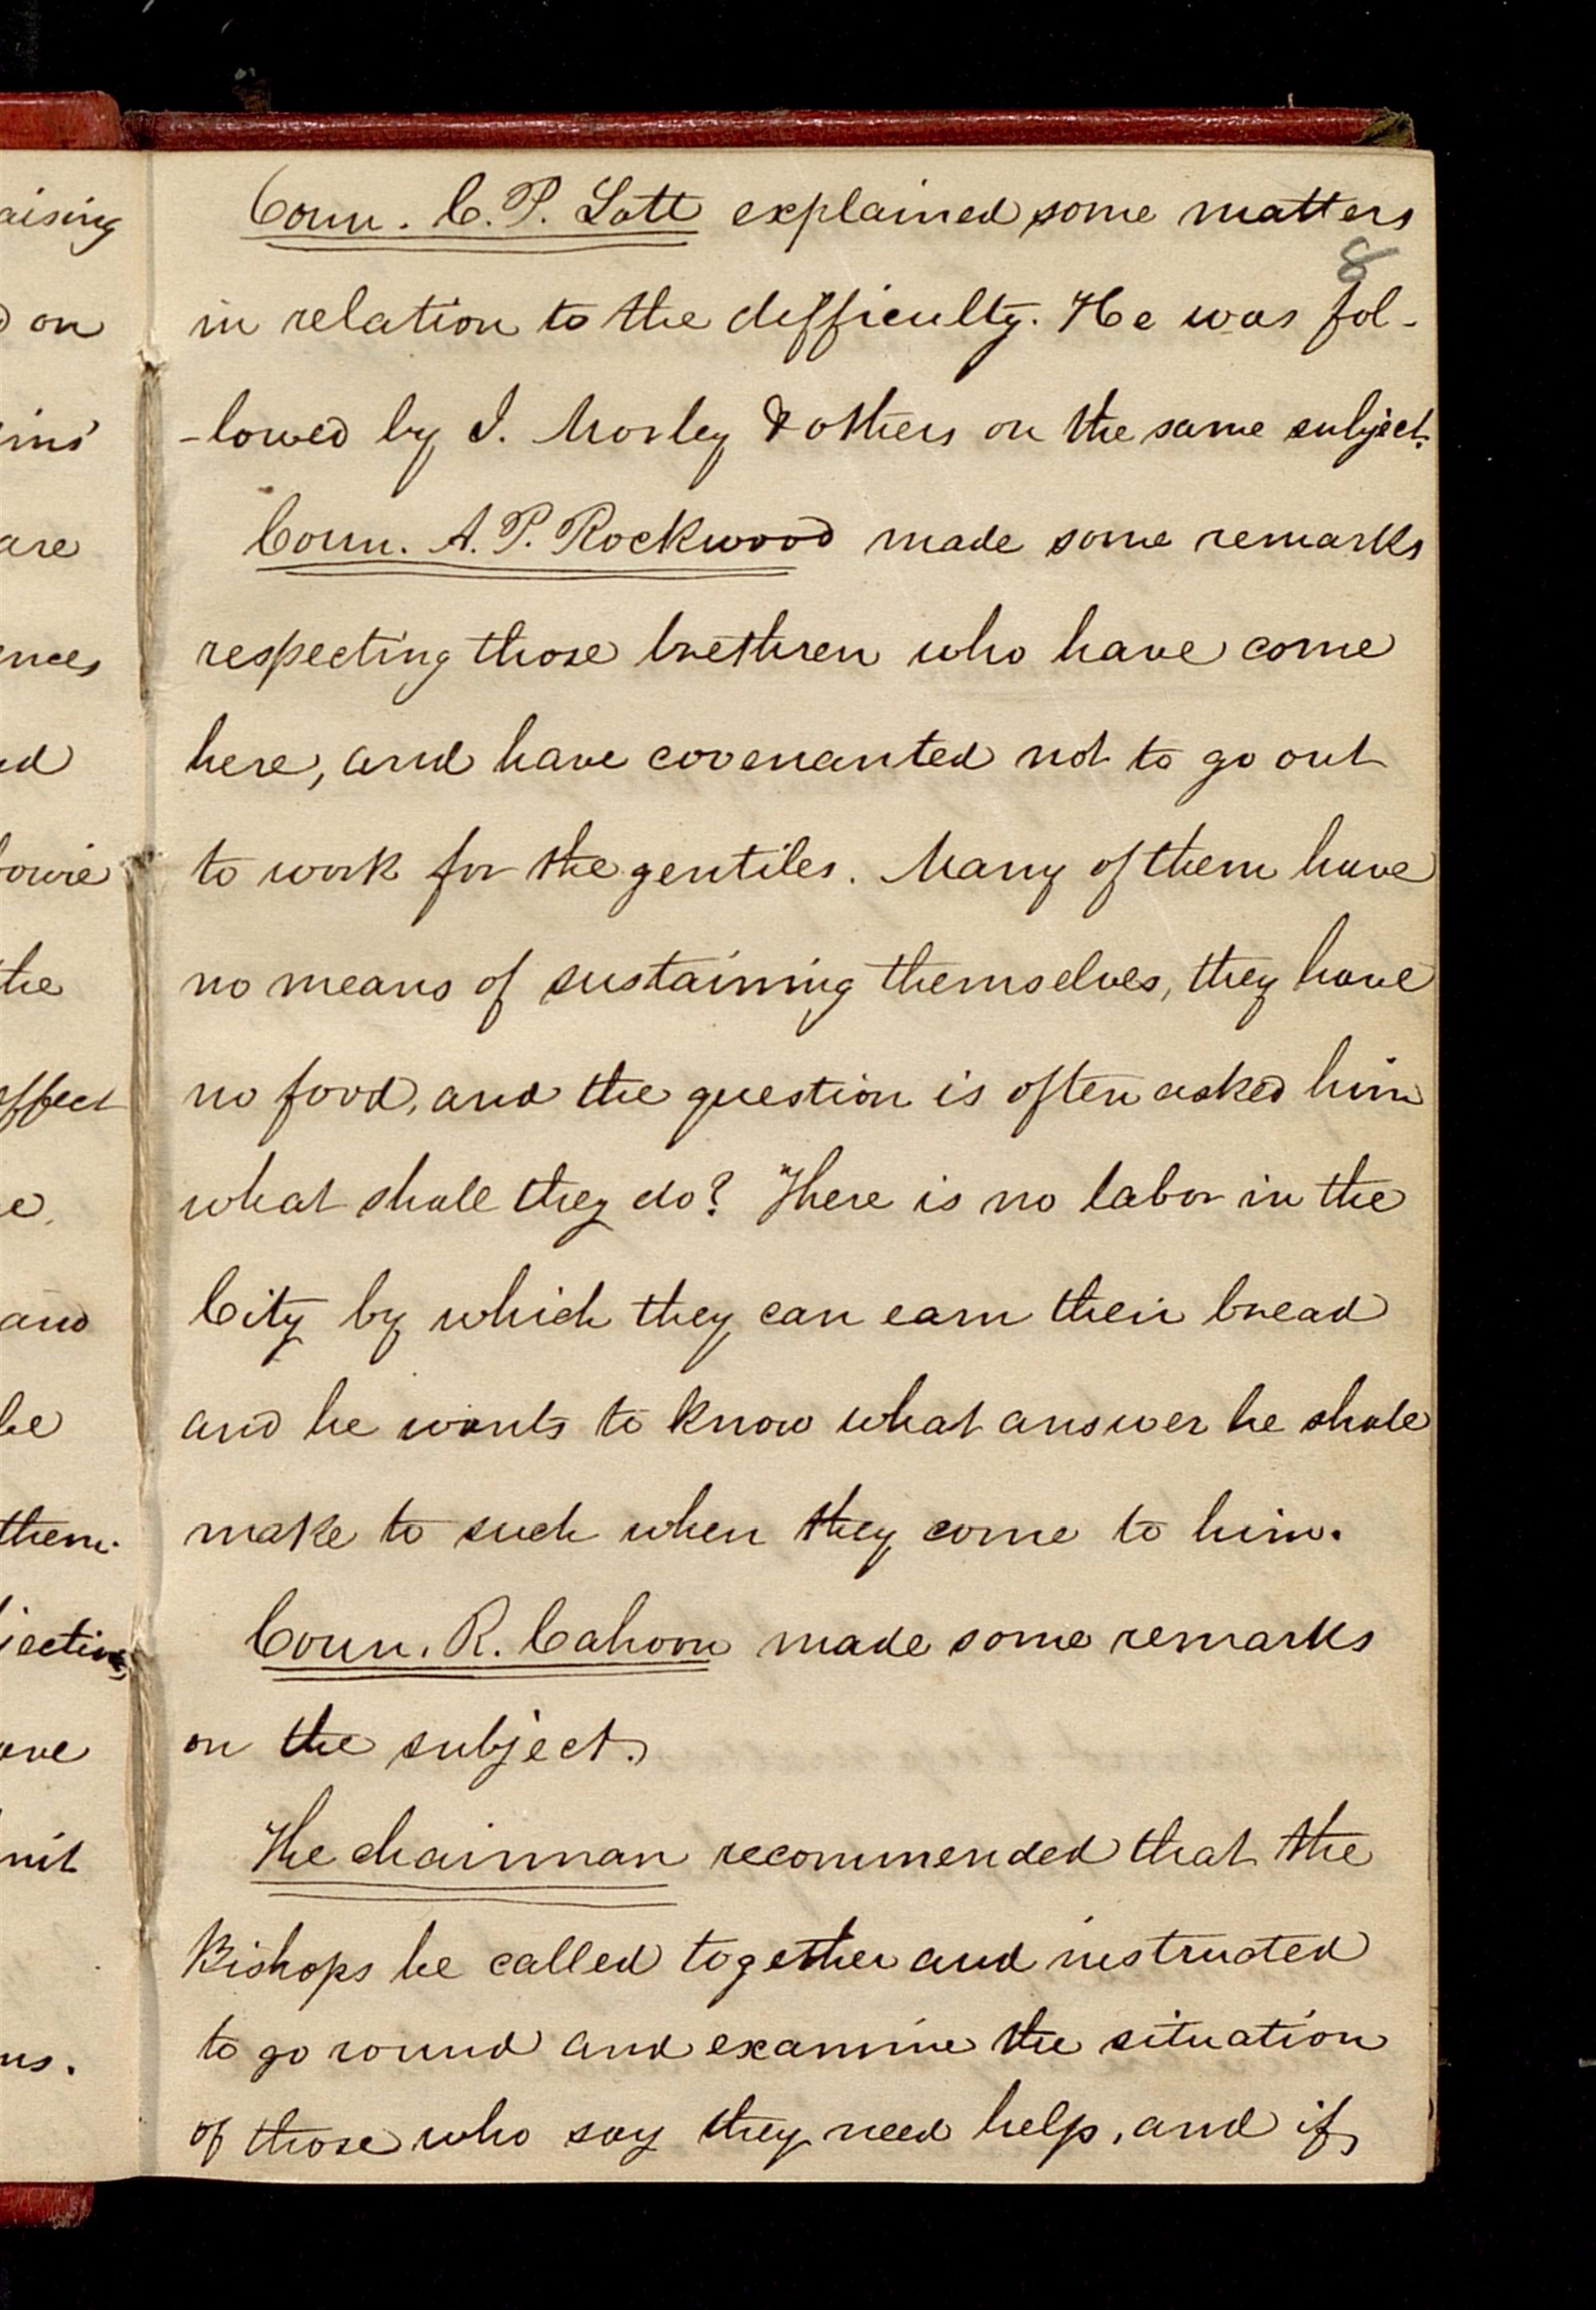 Coun. C. P. Lott explained some matters
8
in relation to the difficulty. He was fol-
-lowed by I. Morley & others on the same subject.
Coun. A. P. Rockwood made some remarks
respecting those brethren who have come
here, and have covenanted not to go out
to work for the gentiles. Many of them have
no means of sustaining themselves, they have
no food, and the question is often asked him
what shall they do? There is no labor in the
City by which they can earn their bread
and he wants to know what answer he shall
make to such when they come to him.
Coun. R. Cahoon made some remarks
on the subject.
The chairman recommended that the
Bishops be called together and instructed
to go round and examine the situation
of those who say they need help, and if